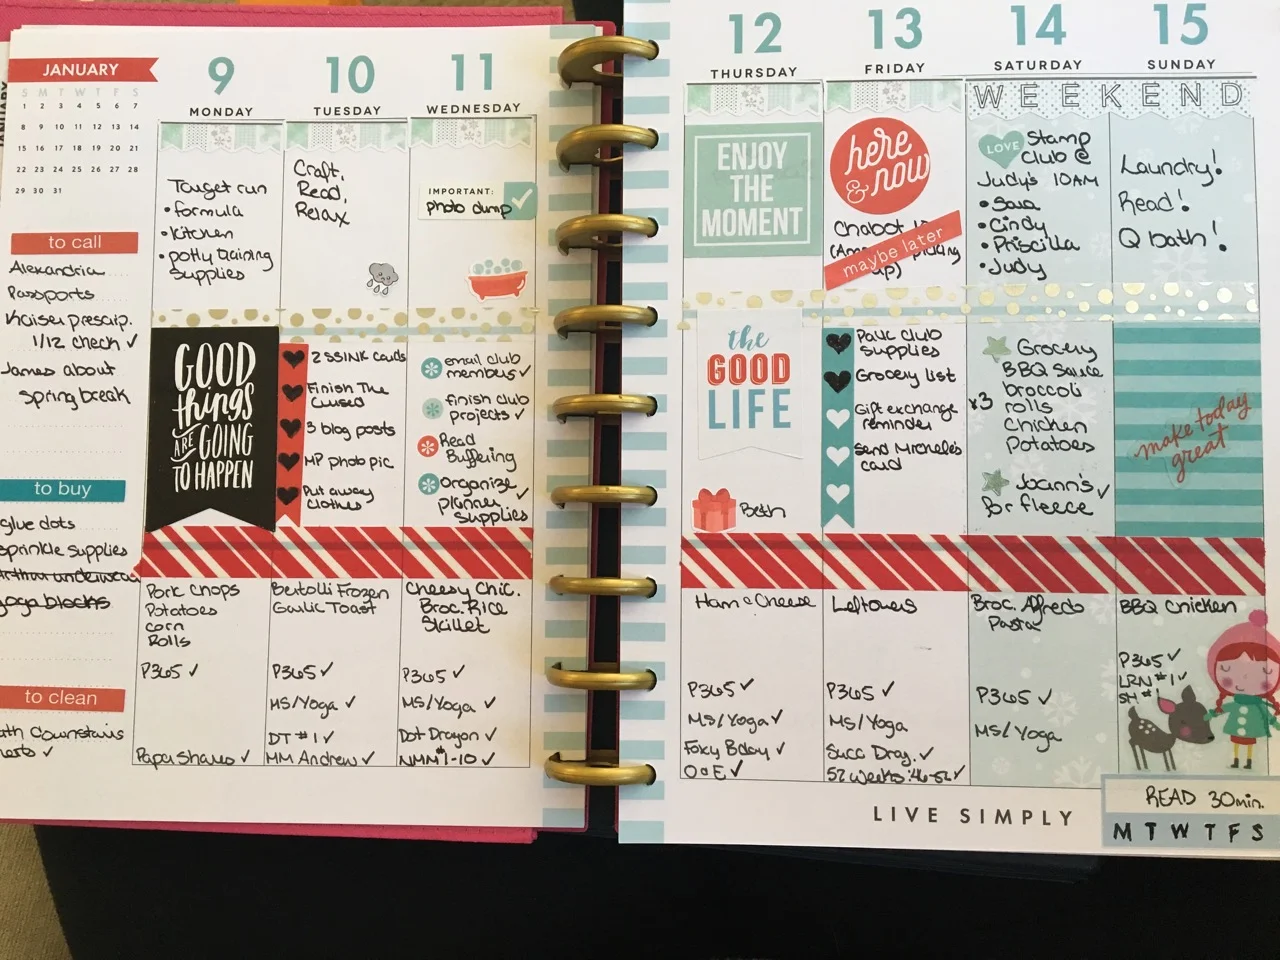 JANUARY
S M T W T F S
1 2 3 4 5 6 7
8 9 10 11 12 13 14
15 16 17 18 19 20 21
22 23 24 25 26 27 28
29 30 31
to call
Alexandria
Passports
Kaiser prescrip.
1/12 check ✓
James about
spring break
to buy
glue dots
sprinkle supplies
yoga blocks
to clean
Downstairs
✓
9
MONDAY
Target run
• formula
• kitchen
• potty training
supplies
GOOD
things
ARE GOING
TO HAPPEN
Pork Chops
Potatoes
corn
Rolls
P365 ✓
Papa Shares ✓
10
TUESDAY
Craft,
Read,
Relax
2 SSINK cards
Finish The
Cursed
3 blog posts
MP photo pic
Put away
clothes
Bertolli Frozen
Garlic Toast
P365 ✓
MS/Yoga ✓
DT #1 ✓
MM Andrew ✓
11
WEDNESDAY
IMPORTANT:
photo dump
email club
members ✓
finish club
projects ✓
Read
Buffering
Organize
planner ✓
supplies
Cheesy Chic.
Broc. Rice
Skillet
P365 ✓
MS/Yoga ✓
Dot Dragon ✓
NMM #1-10 ✓
12
THURSDAY
ENJOY
THE
MOMENT
the
GOOD
LIFE
Beth
Ham & Cheese
P365 ✓
MS/Yoga ✓
Foxy Bday ✓
O&E ✓
13
FRIDAY
here
& now
Chabot
maybe later
up)
Pack club
supplies
Grocery list
Gift exchange
reminder
Send Michele's
card
Leftovers
P365 ✓
MS/Yoga
Succ Drag. ✓
52 Weeks: 46-52 ✓
14
SATURDAY
WEEKEND
LOVE
Stamp
Club @
Judy's 10AM
• Sara
• Cindy
• Priscilla
• Judy
Grocery
BBQ Sauce
broccoli
x3 rolls
chicken
Potatoes
Joann's ✓
for fleece
Broc. Alfredo
Pasta
P365 ✓
MS/Yoga
15
SUNDAY
Laundry!
Read!
Q bath!
make today
great
BBQ Chicken
P365 ✓
LRN #1 ✓
SH #1
LIVE SIMPLY
READ 30min.
M T W T F S